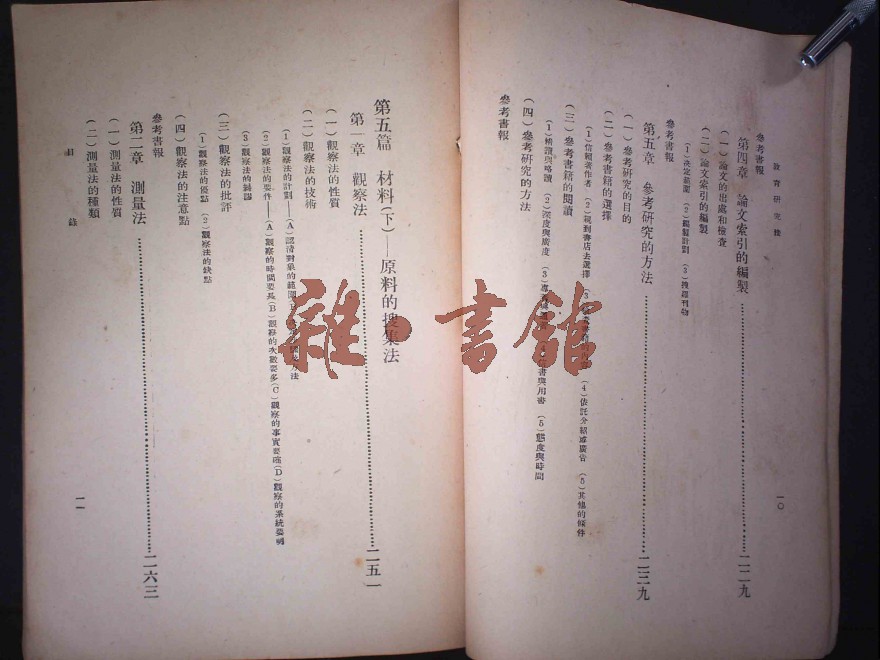 教育研究法
一〇
參考書報
第四章 論文索引的編製……二一九
(一)論文的出處和檢查
(二)論文索引的編製
(1)決定範圍 (2)編製計劃 (3)搜羅刊物
參考書報
第五章 參考研究的方法……二二九
(一)參考研究的目的
(二)參考書籍的選擇
(1)信賴著作者 (2)親到書店去選擇 (4)依託介紹或廣告 (5)其他的條件
(三)參考書籍的閱讀
(1)精讀與略讀 (2)深度與廣度 (3)專 書與用書 (5)態度與時間
(四)參考研究的方法
參考書報
第五篇 材料(下)——原料的搜集法
第一章 觀察法……二五一
(一)觀察法的性質
(二)觀察法的技術
(1)觀察法的計劃——(A)認清對象的範圍 方法
(2)觀察法的要件——(A)觀察的時間要長(B)觀察的次數要多(C)觀察的事實要確(D)觀察的系統要明
(3)觀察法的歸謬
(三)觀察法的批評
(1)觀察法的優點 (2)觀察法的缺點
(四)觀察法的注意點
參考書報
第二章 測量法……二六三
(一)測量法的性質
(二)測量法的種類
目 錄
一一
雜·書館